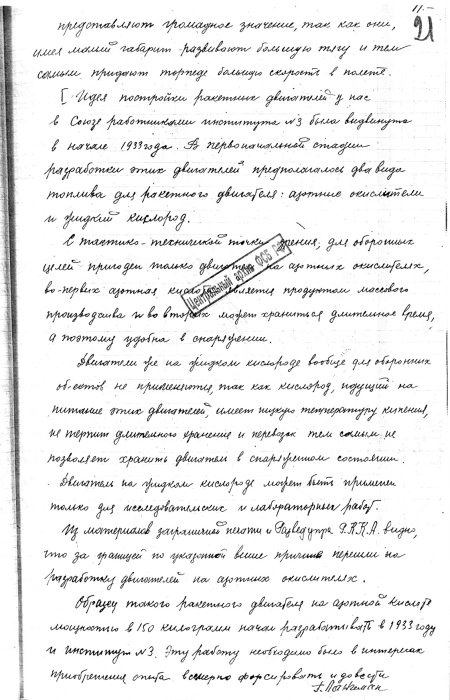 11.-
21
представляют громадное значение, так как они,
имея малый габарит развивают большую тягу и тем
самым придают торпеде большую скорость в полете.
[ Идея постройки ракетных двигателей у нас
в Союзе работниками института №3 была выдвинута
в начале 1933 года. В первоначальной стадии
разработки этих двигателей предполагалось два вида
топлива для ракетного двигателя: азотные окислители
и жидкий кислород.
С тактико-технической точки зрения, для оборонных
целей пригоден только двигатель на азотных окислителях,
во-первых азотная кислота является продуктом массового
производства и во вторых может храниться длительное время,
а поэтому удобна в снаряжении.
Двигатели же на жидком кислороде вообще для оборонных
об-ектов не применяются, так как кислород, идущий на
питание этих двигателей, имеет низкую температуру кипения,
не терпит длительного хранения и перевозок тем самым не
позволяет хранить двигатель в снаряженном состоянии.
Двигатель на жидком кислороде может быть применен
только для исследовательских и лабораторных работ.
Из материалов заграничной печати и Разведупра Р.К.К.А. видно,
что за границей по указанной выше причине перешли на
разработку двигателей на азотных окислителях.
Образец такого ракетного двигателя на азотной кислоте
мощностью в 150 килограмм начал разрабатывать в 1933 году
и институт №3. Эту работу необходимо было в интересах
приобретения опыта всемерно форсировать и довести
Г. Лангемак
Центральный архив ФСБ РФ